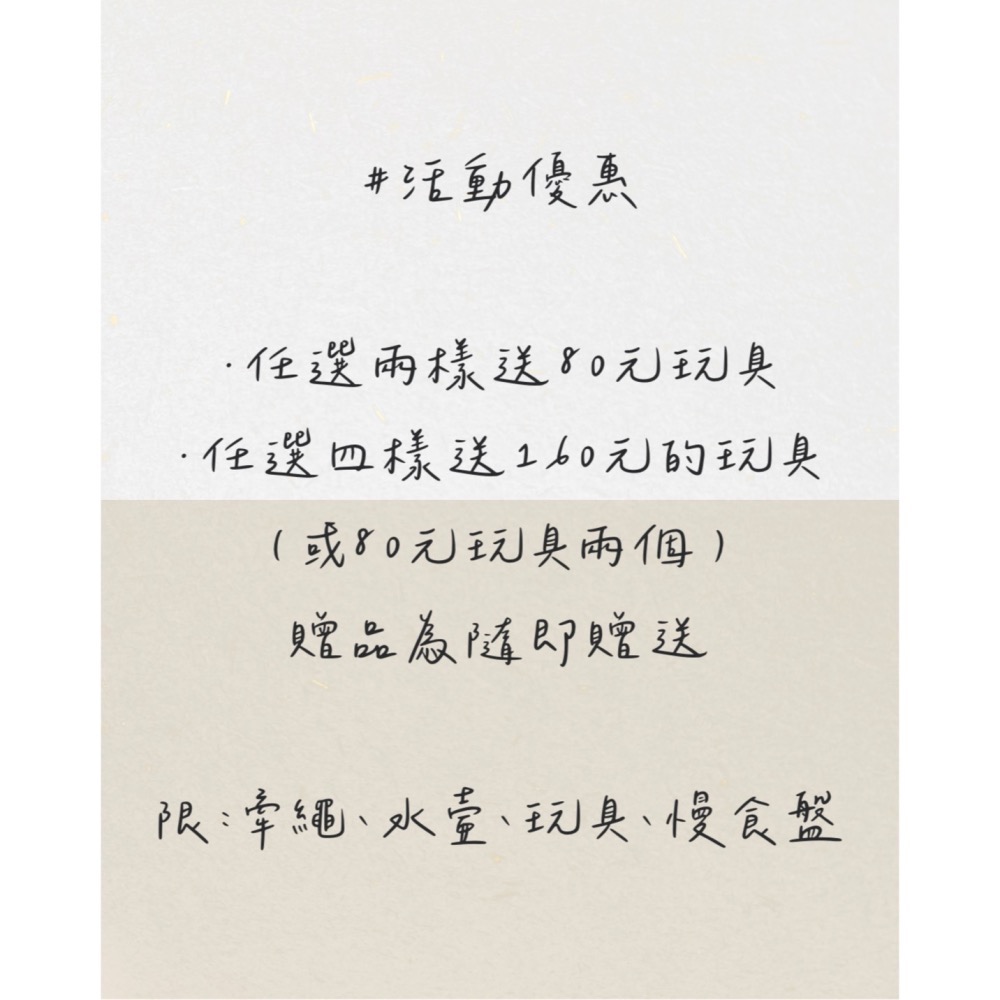 #活動優惠
·任選兩樣送80元玩具
·任選四樣送160元的玩具
(或80元玩具兩個)
贈品為隨即贈送
限:牽繩、水壺、玩具、慢食盤